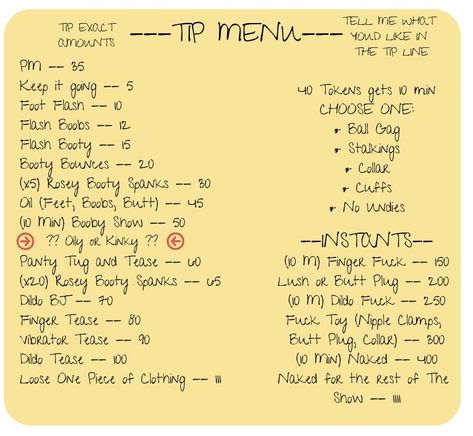 TIP EXACT
AMOUNTS
---TIP MENU---
TELL ME WHAT
YOU'D LIKE IN
THE TIP LINE
PM -- 35
Keep it going -- 5
Foot Flash -- 10
Flash Boobs -- 12
Flash Booty -- 15
Booty Bounces -- 20
(x5) Rosey Booty Spanks -- 30
Oil (Feet, Boobs, Butt) -- 45
(10 Min) Booby Show -- 50
?? Oily or Kinky ??
Panty Tug and Tease -- 60
(x20) Rosey Booty Spanks -- 65
Dildo BJ -- 70
Finger Tease -- 80
Vibrator Tease -- 90
Dildo Tease -- 100
Loose One Piece of Clothing -- 111
40 Tokens gets 10 min
CHOOSE ONE:
* Ball Gag
* Stalkings
* Collar
* Cuffs
* No Undies
--INSTANTS--
(10 M) Finger Fuck -- 150
Lush or Butt Plug -- 200
(10 M) Dildo Fuck -- 250
Fuck Toy (Nipple Clamps,
Butt Plug, Collar) -- 300
(10 Min) Naked -- 400
Naked for the rest of The
Show -- 1111